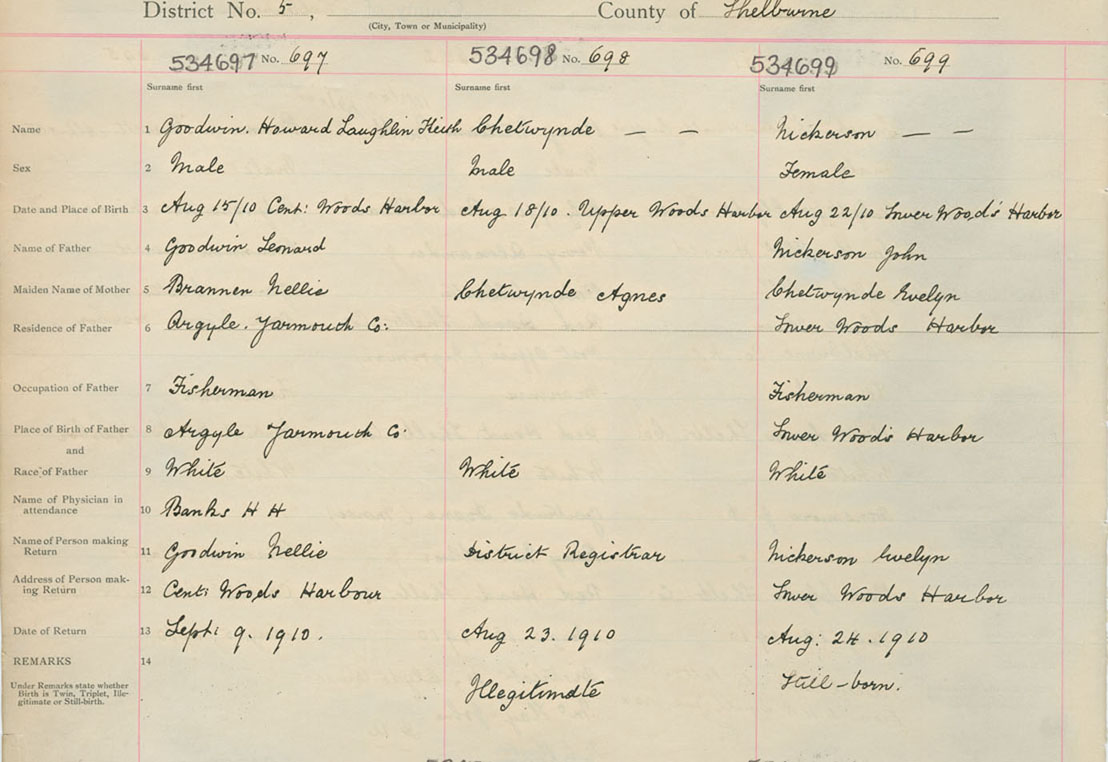 District No. 5, County of Shelburne
(City, Town or Municipality)
534697 No. 697 534698 No. 698 534699 No. 699
Surname first Surname first Surname first
Name 1 Goodwin. Howard Laughlin Keith Chetwynde — — Nickerson — —
Sex 2 Male Male Female
Date and Place of Birth 3 Aug 15/10 Cent: Woods Harbor Aug 18/10. Upper Woods Harbor Aug 22/10 Lower Wood's Harbor
Name of Father 4 Goodwin Leonard Nickerson John
Maiden Name of Mother 5 Brannen Nellie Chetwynde Agnes Chetwynde Evelyn
Residence of Father 6 Argyle. Yarmouth Co: Lower Woods Harbor
Occupation of Father 7 Fisherman Fisherman
Place of Birth of Father 8 Argyle Yarmouth Co: Lower Wood's Harbor
and
Race of Father 9 White White White
Name of Physician in
attendance 10 Banks H H
Name of Person making
Return 11 Goodwin Nellie District Registrar Nickerson Evelyn
Address of Person mak-
ing Return 12 Cent: Woods Harbour Lower Woods Harbor
Date of Return 13 Sept: 9. 1910. Aug 23. 1910 Aug: 24. 1910
REMARKS 14
Under Remarks state whether
Birth is Twin, Triplet, Ille-
gitimate or Still-birth. Illegitimate Still-born.